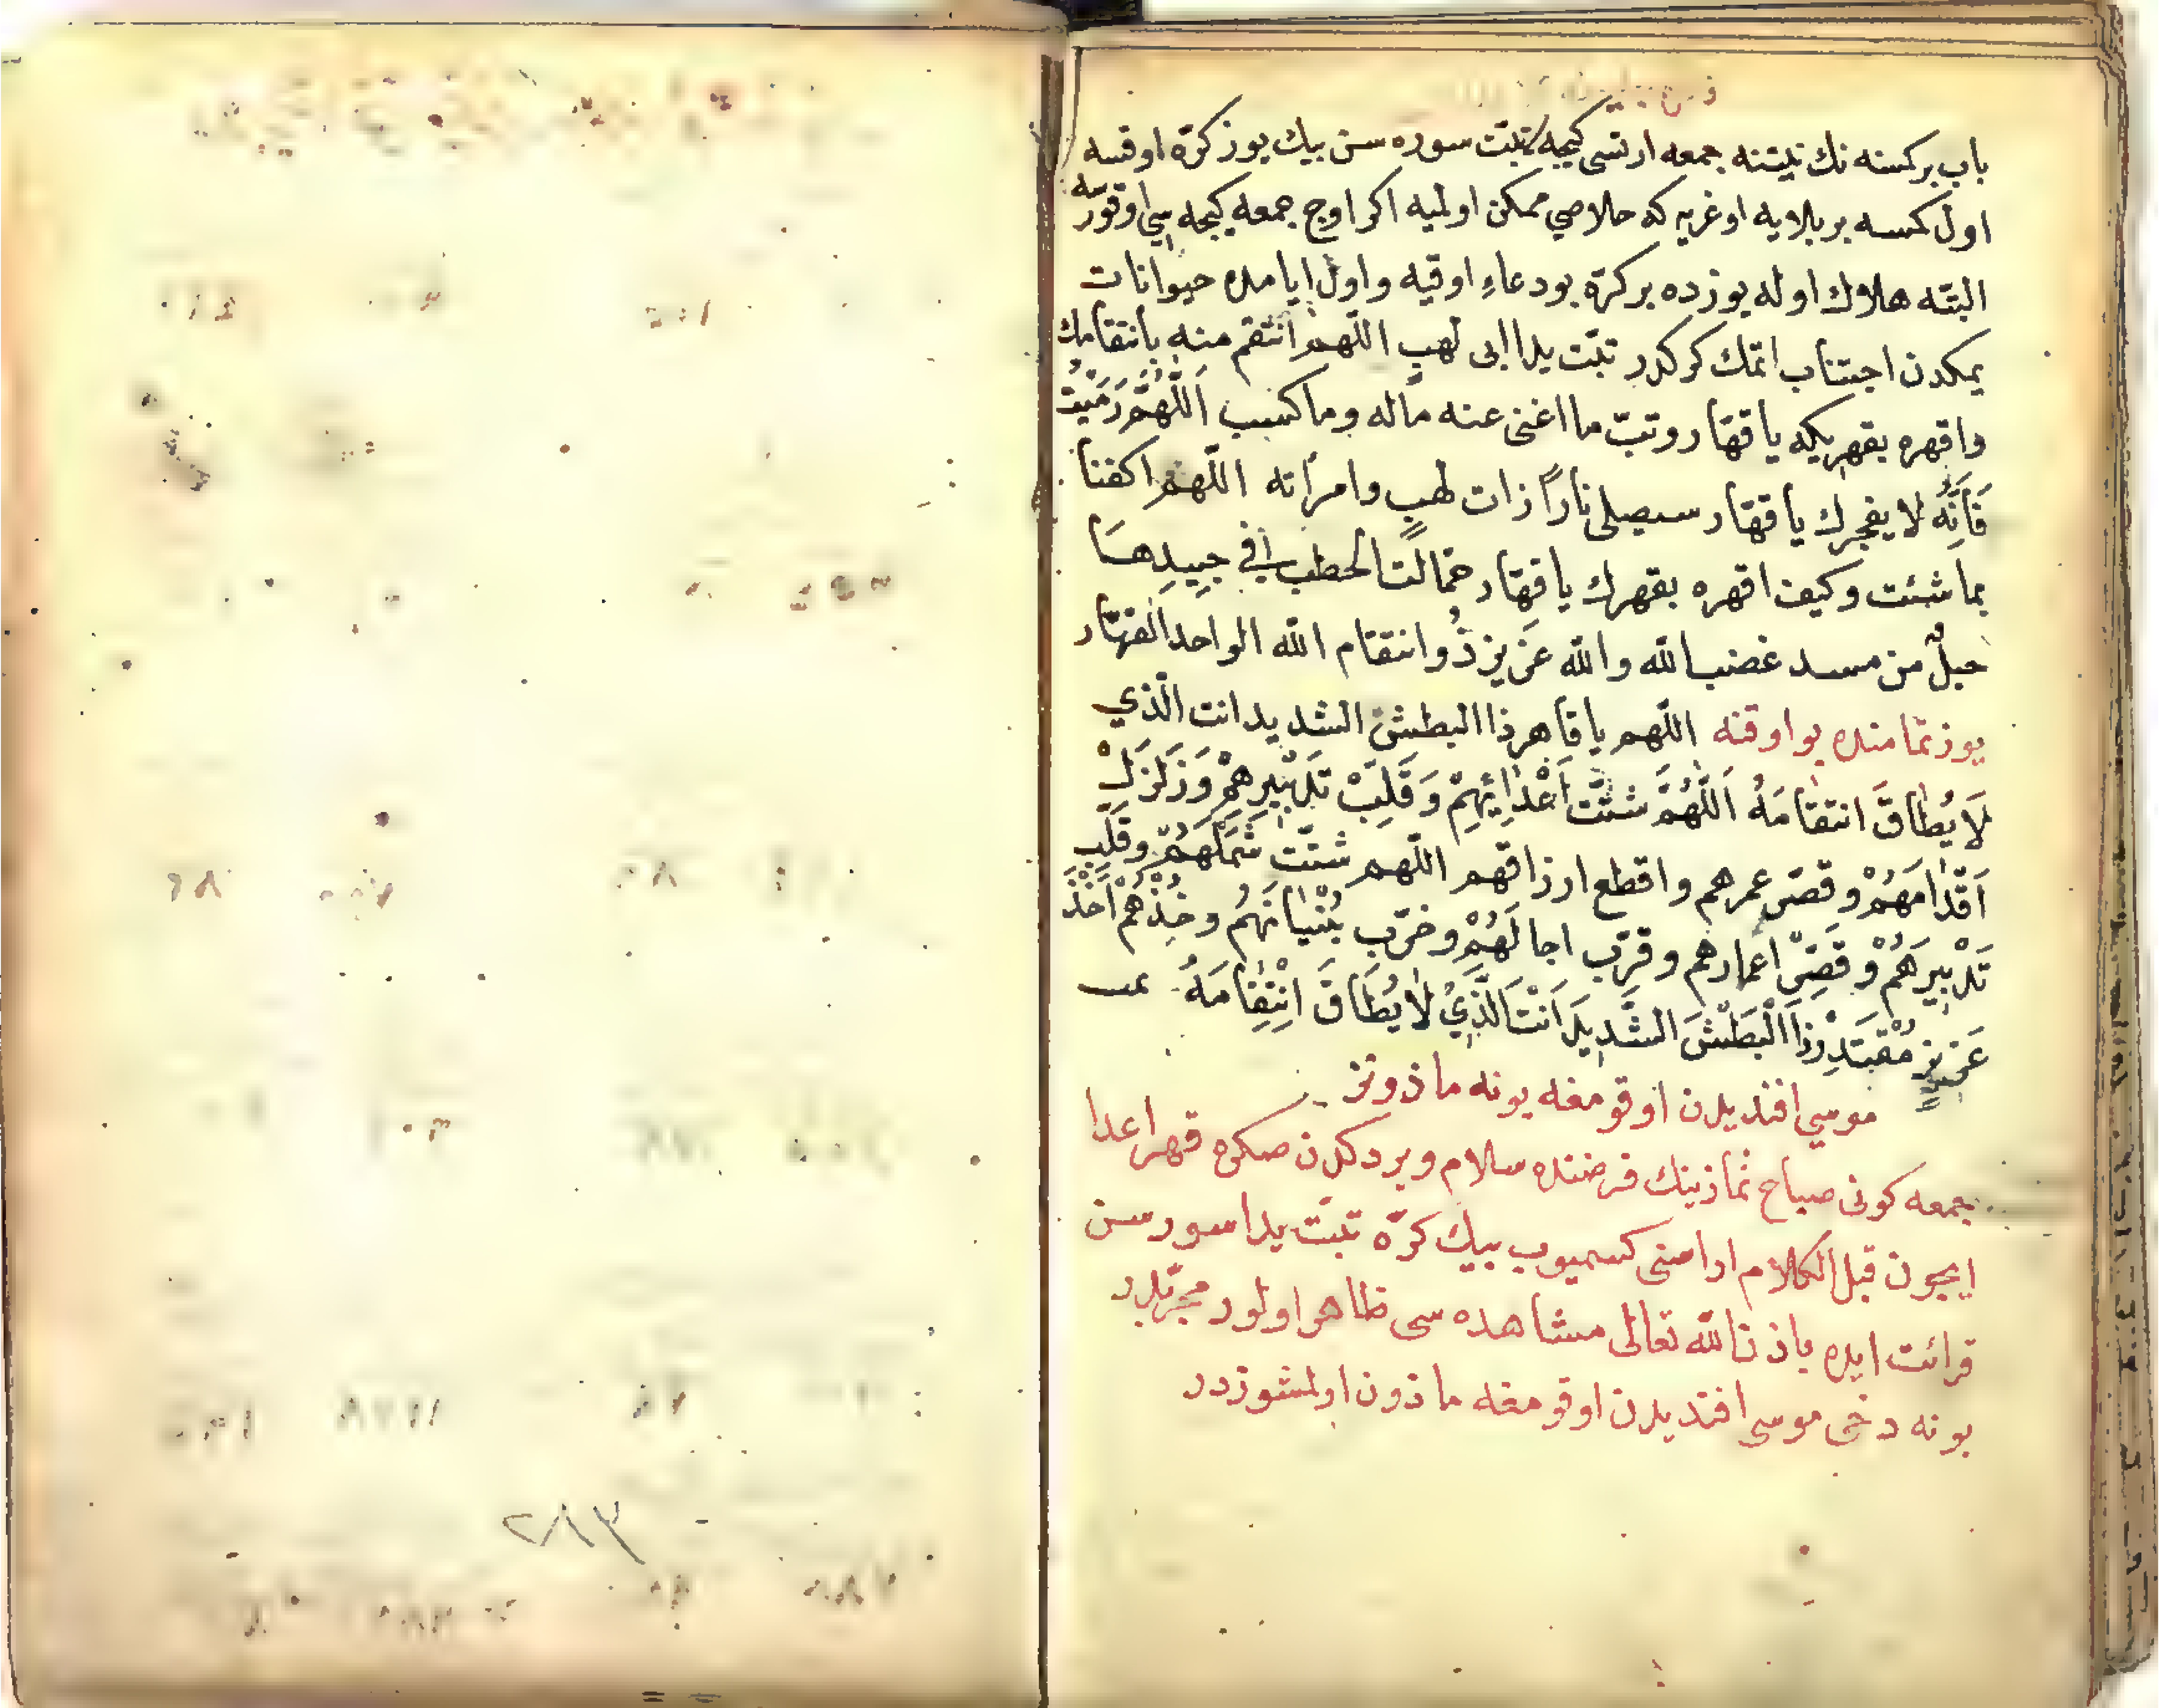 باب بر كمسنه نك نيتنه جمعه ارتسى كيجه تبّت سوره سن بيك يوز كرّه اوقسه
اول كمسه بر بلايه اوغريه كه خلاصي ممكن اولميه اكر اوج جمعه كيجه سي اوقورسه
البته هلاك اوله يوزده بر كرّه بو دعاءِ اوقيه و اول ايامده حيوانات
يمكدن اجتناب اتمك كركدر تبّت يدا ابى لهب اللّهم انتقم منه بانتقامك
واقهره بقهريكه يا قهّار وتبّ ما اغنى عنه ماله وما كسب اَللّهُمَّ رَمَيْتَ
فَاَنَّهُ لا يفجرك يا قهّار سيصلى ناراً ذات لهبٍ وامرأته اللّهم اكفنا
بما شئت وكيف اقهره بقهرك يا قهّار حمّالتَ الحطب في جِيدِهَا
حبلٌ من مسد غضب الله والله عَزيز ذُو انتقام الله الواحد القهّار
يوز تمامنده بو اوقنه اللّهم يا قاهر ذا البطش الشديد انت الّذي
لَا يُطَاقَ انتقامَهُ اَللّهُمَّ شتّت اَعْدَائِهِمْ وَقَلِبْ تَدْبِيرِهِمْ وَزَلْزَلْ
اَقْدَامَهُمْ وقصّر عمرهم واقطع ارزاقهم اللّهم شتّت شَمْلَهُمْ وقلّب
تَدْبِيرَهُمْ وقَصِّر اعمارهم وقرّب اجالَهُمْ وخرّب بُنْيَانَهُمْ وخُذْهُمْ اَخْذَ
عَزِيزٍ مُقْتَدِرْ ذَا الْبَطْشَ الشَّدِيدَ اَنْتَ الَّذِيُ لا يُطَاقَ اِنْتِقَامَهُ
موسي افنديدن اوقومغه بونه ماذونز
جمعه كونى صباح نمازينك فرضنده سلام ويردكدن صكره قهر اعدا
ايچون قبل الكلام اراسنى كسميوب بيك كرّه تبّت يدا سورسن
قرائت ايده باذن الله تعالى مشاهده سى ظاهر اولور مجرّبدر
بونه دخى موسى افنديدن اوقومغه ماذون اولمشوزدر
٢٨٣